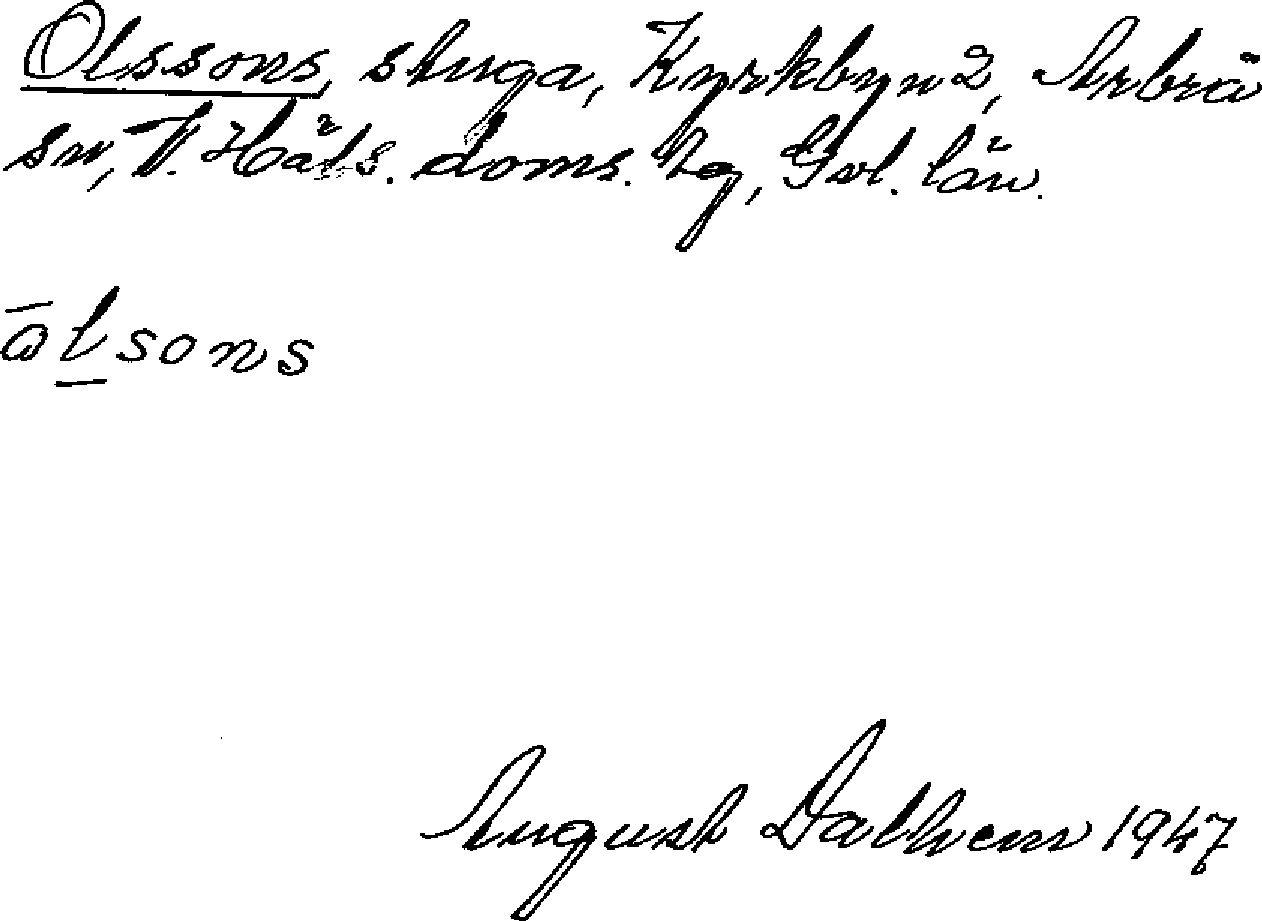 Olssons, stuga, Kyrkbyn 2, Arbrå
sn, V. Häls. doms. tg, Gvl. län.
ālsons
August Dalhem 1947